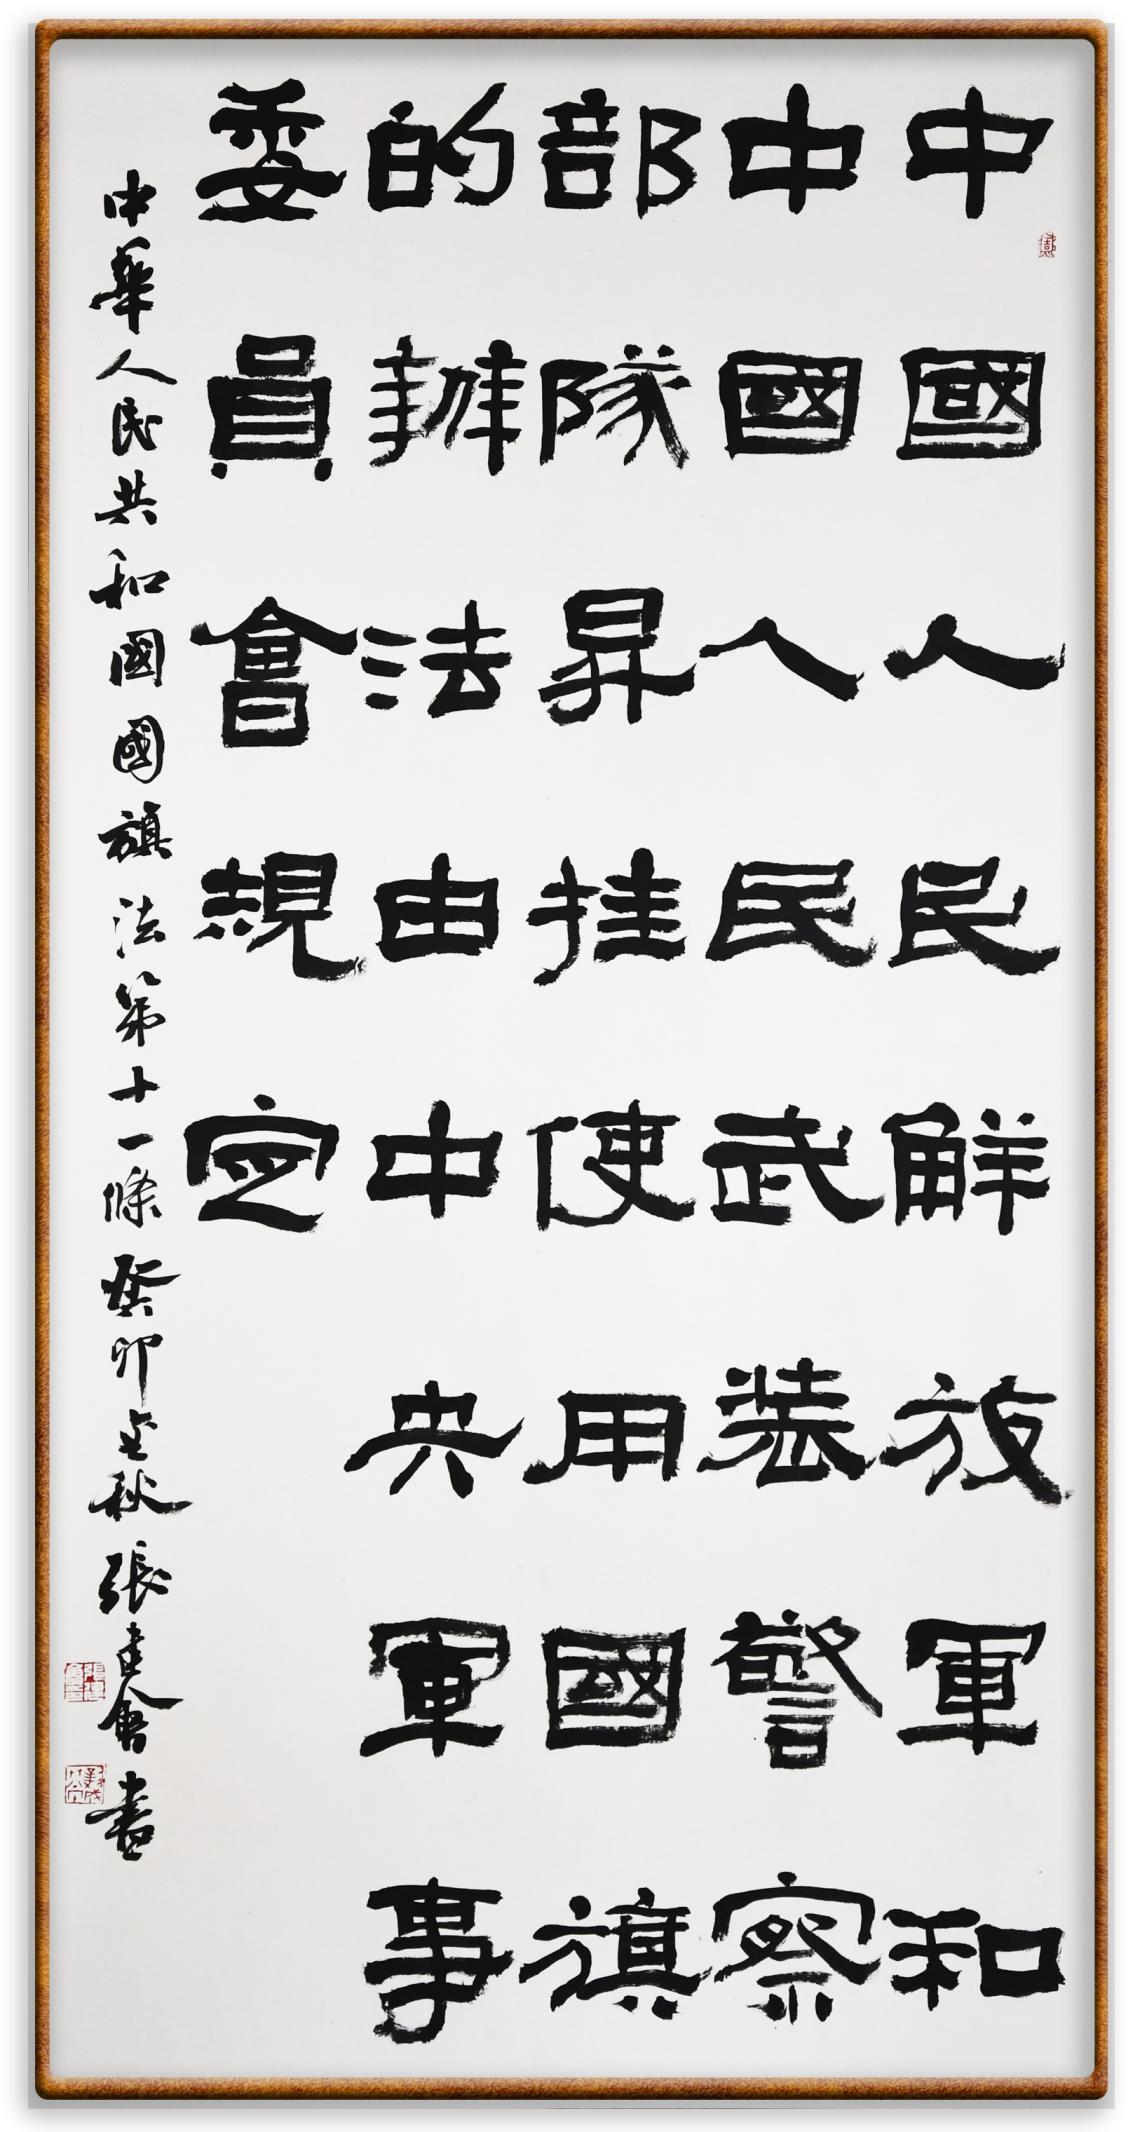 中國人民解放軍和
中國人民武裝警察
部隊昇挂使用國旗
的辦法由中央軍事
委員會規定
中華人民共和國國旗法第十一條癸卯金秋張建會書